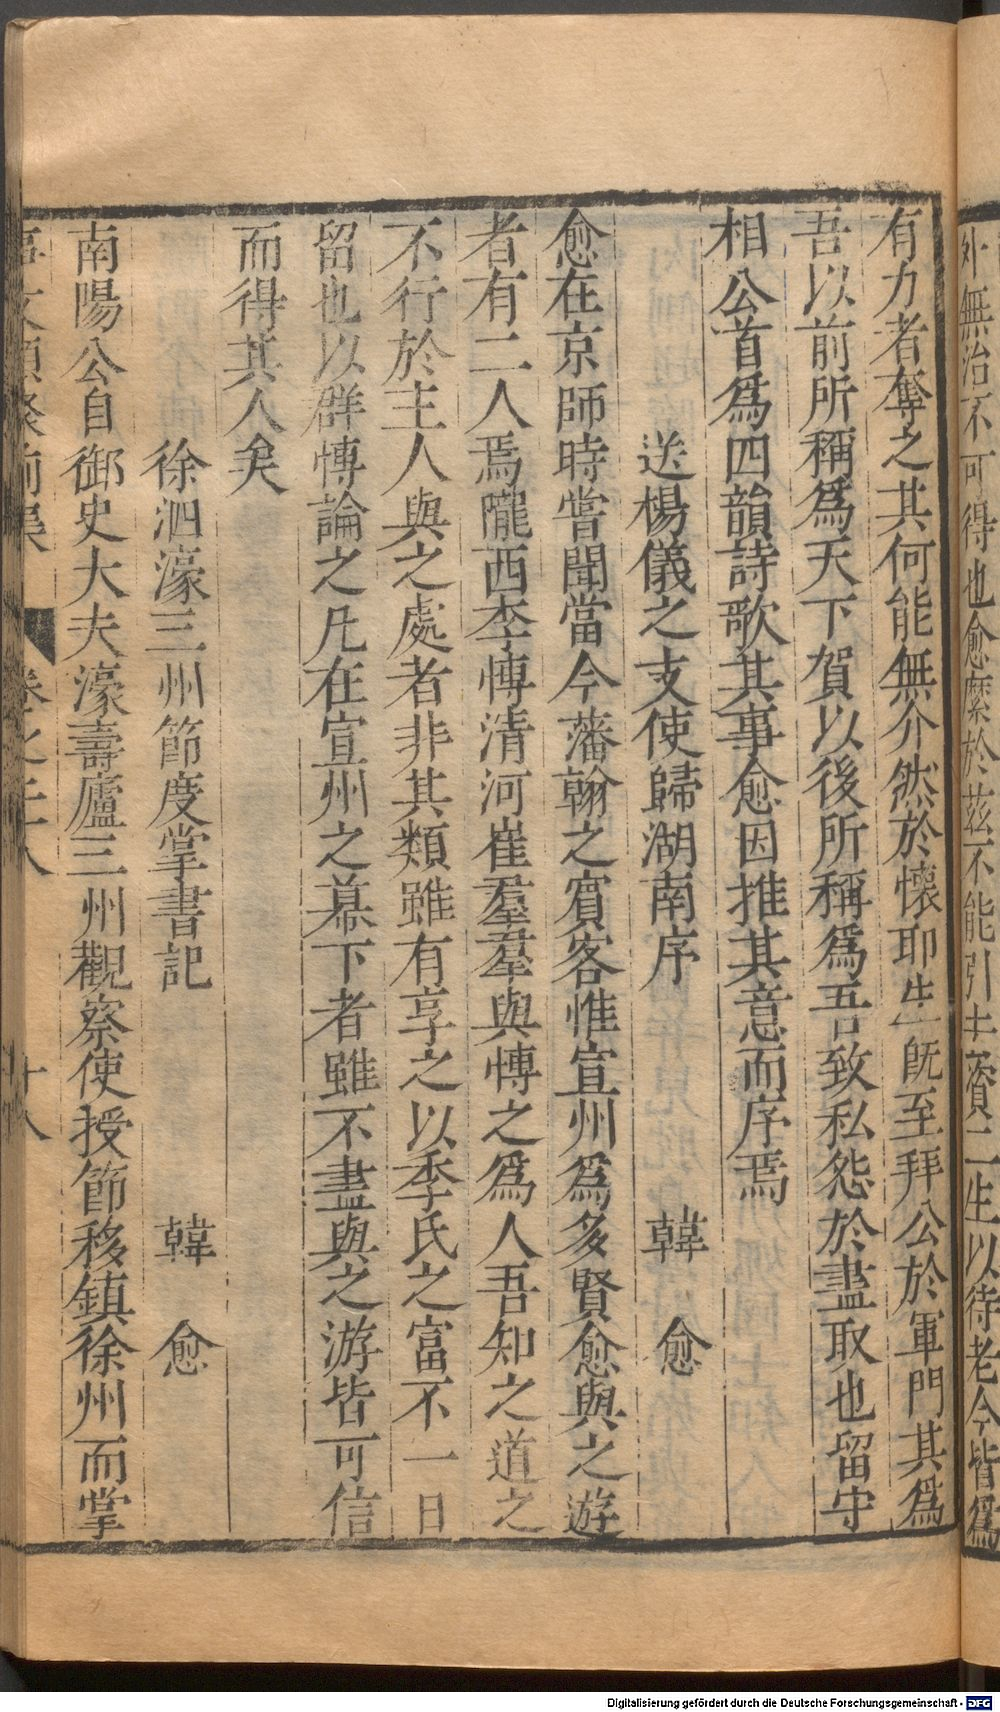 外無治不可得也愈縻於茲不能引去資二生以待老今皆爲
有力者奪之其何能無介然於懷耶生旣至拜公於軍門其爲
吾以前所稱爲天下賀以後所稱爲吾致私怨於盡取也留守
相公首爲四韻詩歌其事愈因推其意而序焉
送楊儀之支使歸湖南序 韓愈
愈在京師時嘗聞當今藩翰之賓客惟宣州爲多賢愈與之遊
者有二人焉隴西李愽清河崔羣羣與愽之爲人吾知之道之
不行於主人與之處者非其類雖有享之以季氏之富不一日
留也以群愽論之凡在宣州之幕下者雖不盡與之游皆可信
而得其人矣
徐泗濠三州節度掌書記 韓愈
南陽公自御史大夫濠壽廬三州觀察使授節移鎮徐州而掌
事文類聚前集 卷之三十八 十八
Digitalisierung gefördert durch die Deutsche Forschungsgemeinschaft - DFG